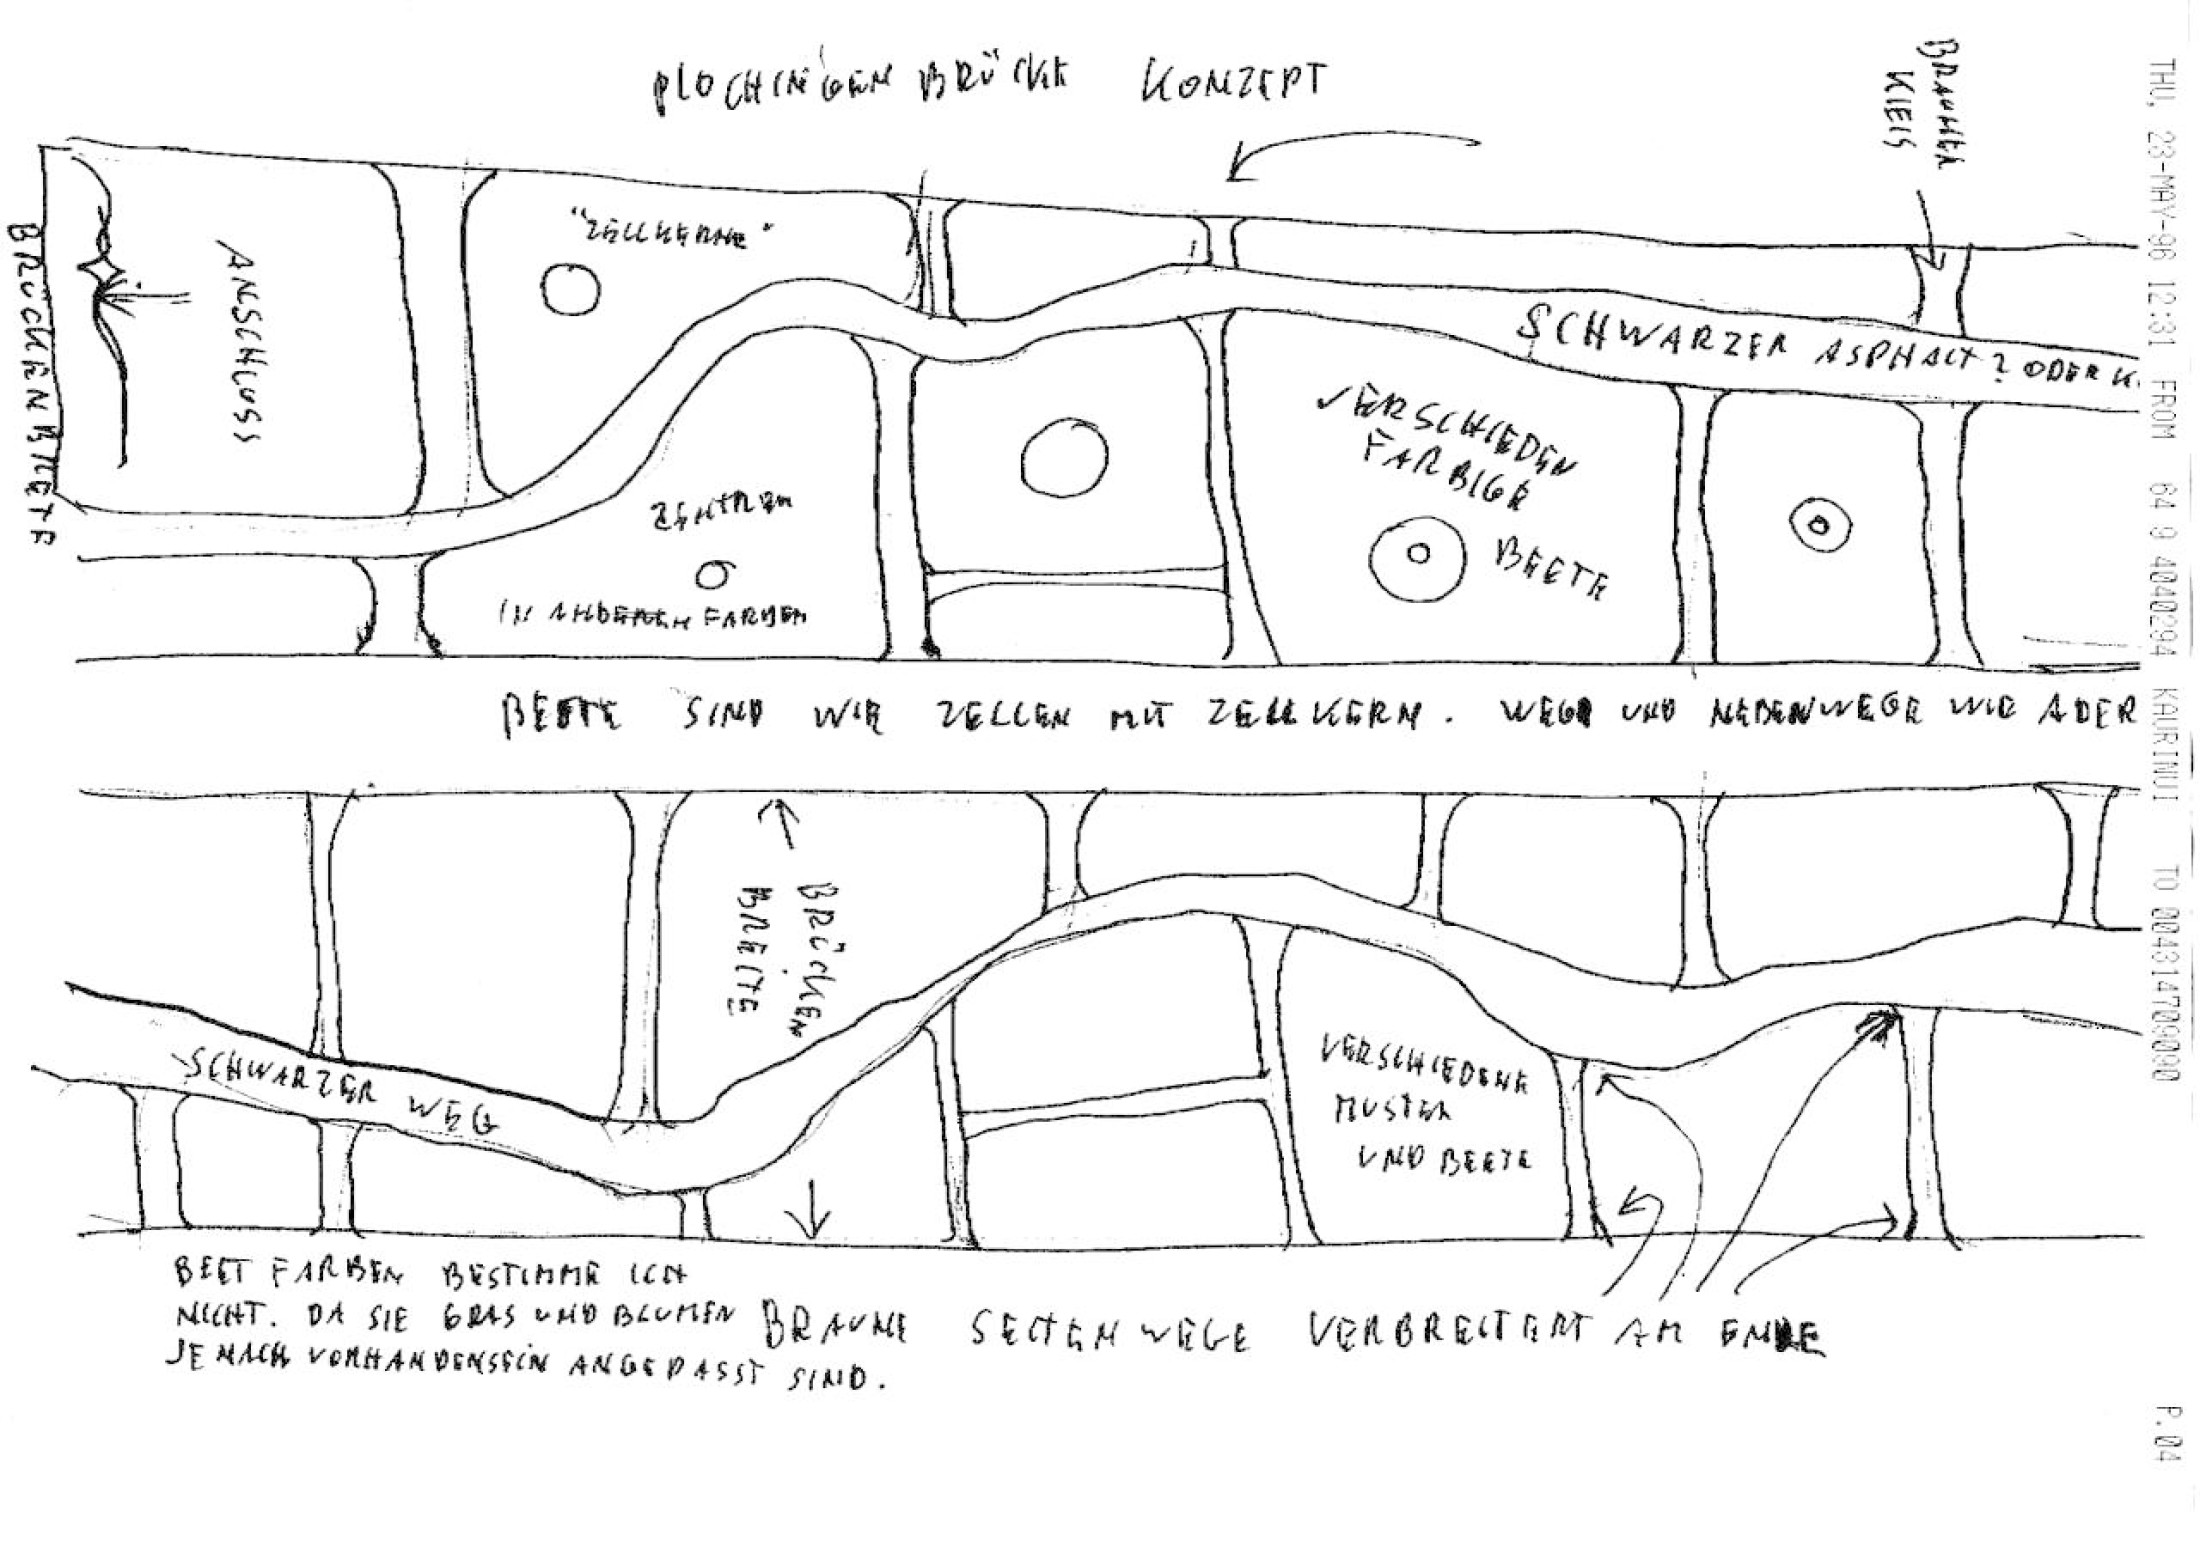 PLOCHINGEN BRÜCKE KONZEPT
BRAUNER
KIES
BRÜCKENBREITE
ANSCHLUSS
"ZELLKERNE"
SCHWARZER ASPHALT? ODER K
VERSCHIEDEN
FARBIGE
BEETE
ZENTREN
IN ANDEREN FARBEN
BEETE SIND WIE ZELLEN MIT ZELLKERN. WEGE UND NEBENWEGE WIE ADER
BRÜCKEN
BREITE
SCHWARZER WEG
VERSCHIEDENE
MUSTER
UND BEETE
BEET FARBEN BESTIMME ICH
NICHT. DA SIE GRAS UND BLUMEN
JE NACH VORHANDENSEIN ANGEPASST SIND.
BRAUNE SEITENWEGE VERBREITERT AM ENDE
THU, 23-MAY-96 12:31 FROM 64 9 4040294 KAURINUI TO 004314709090 P.04